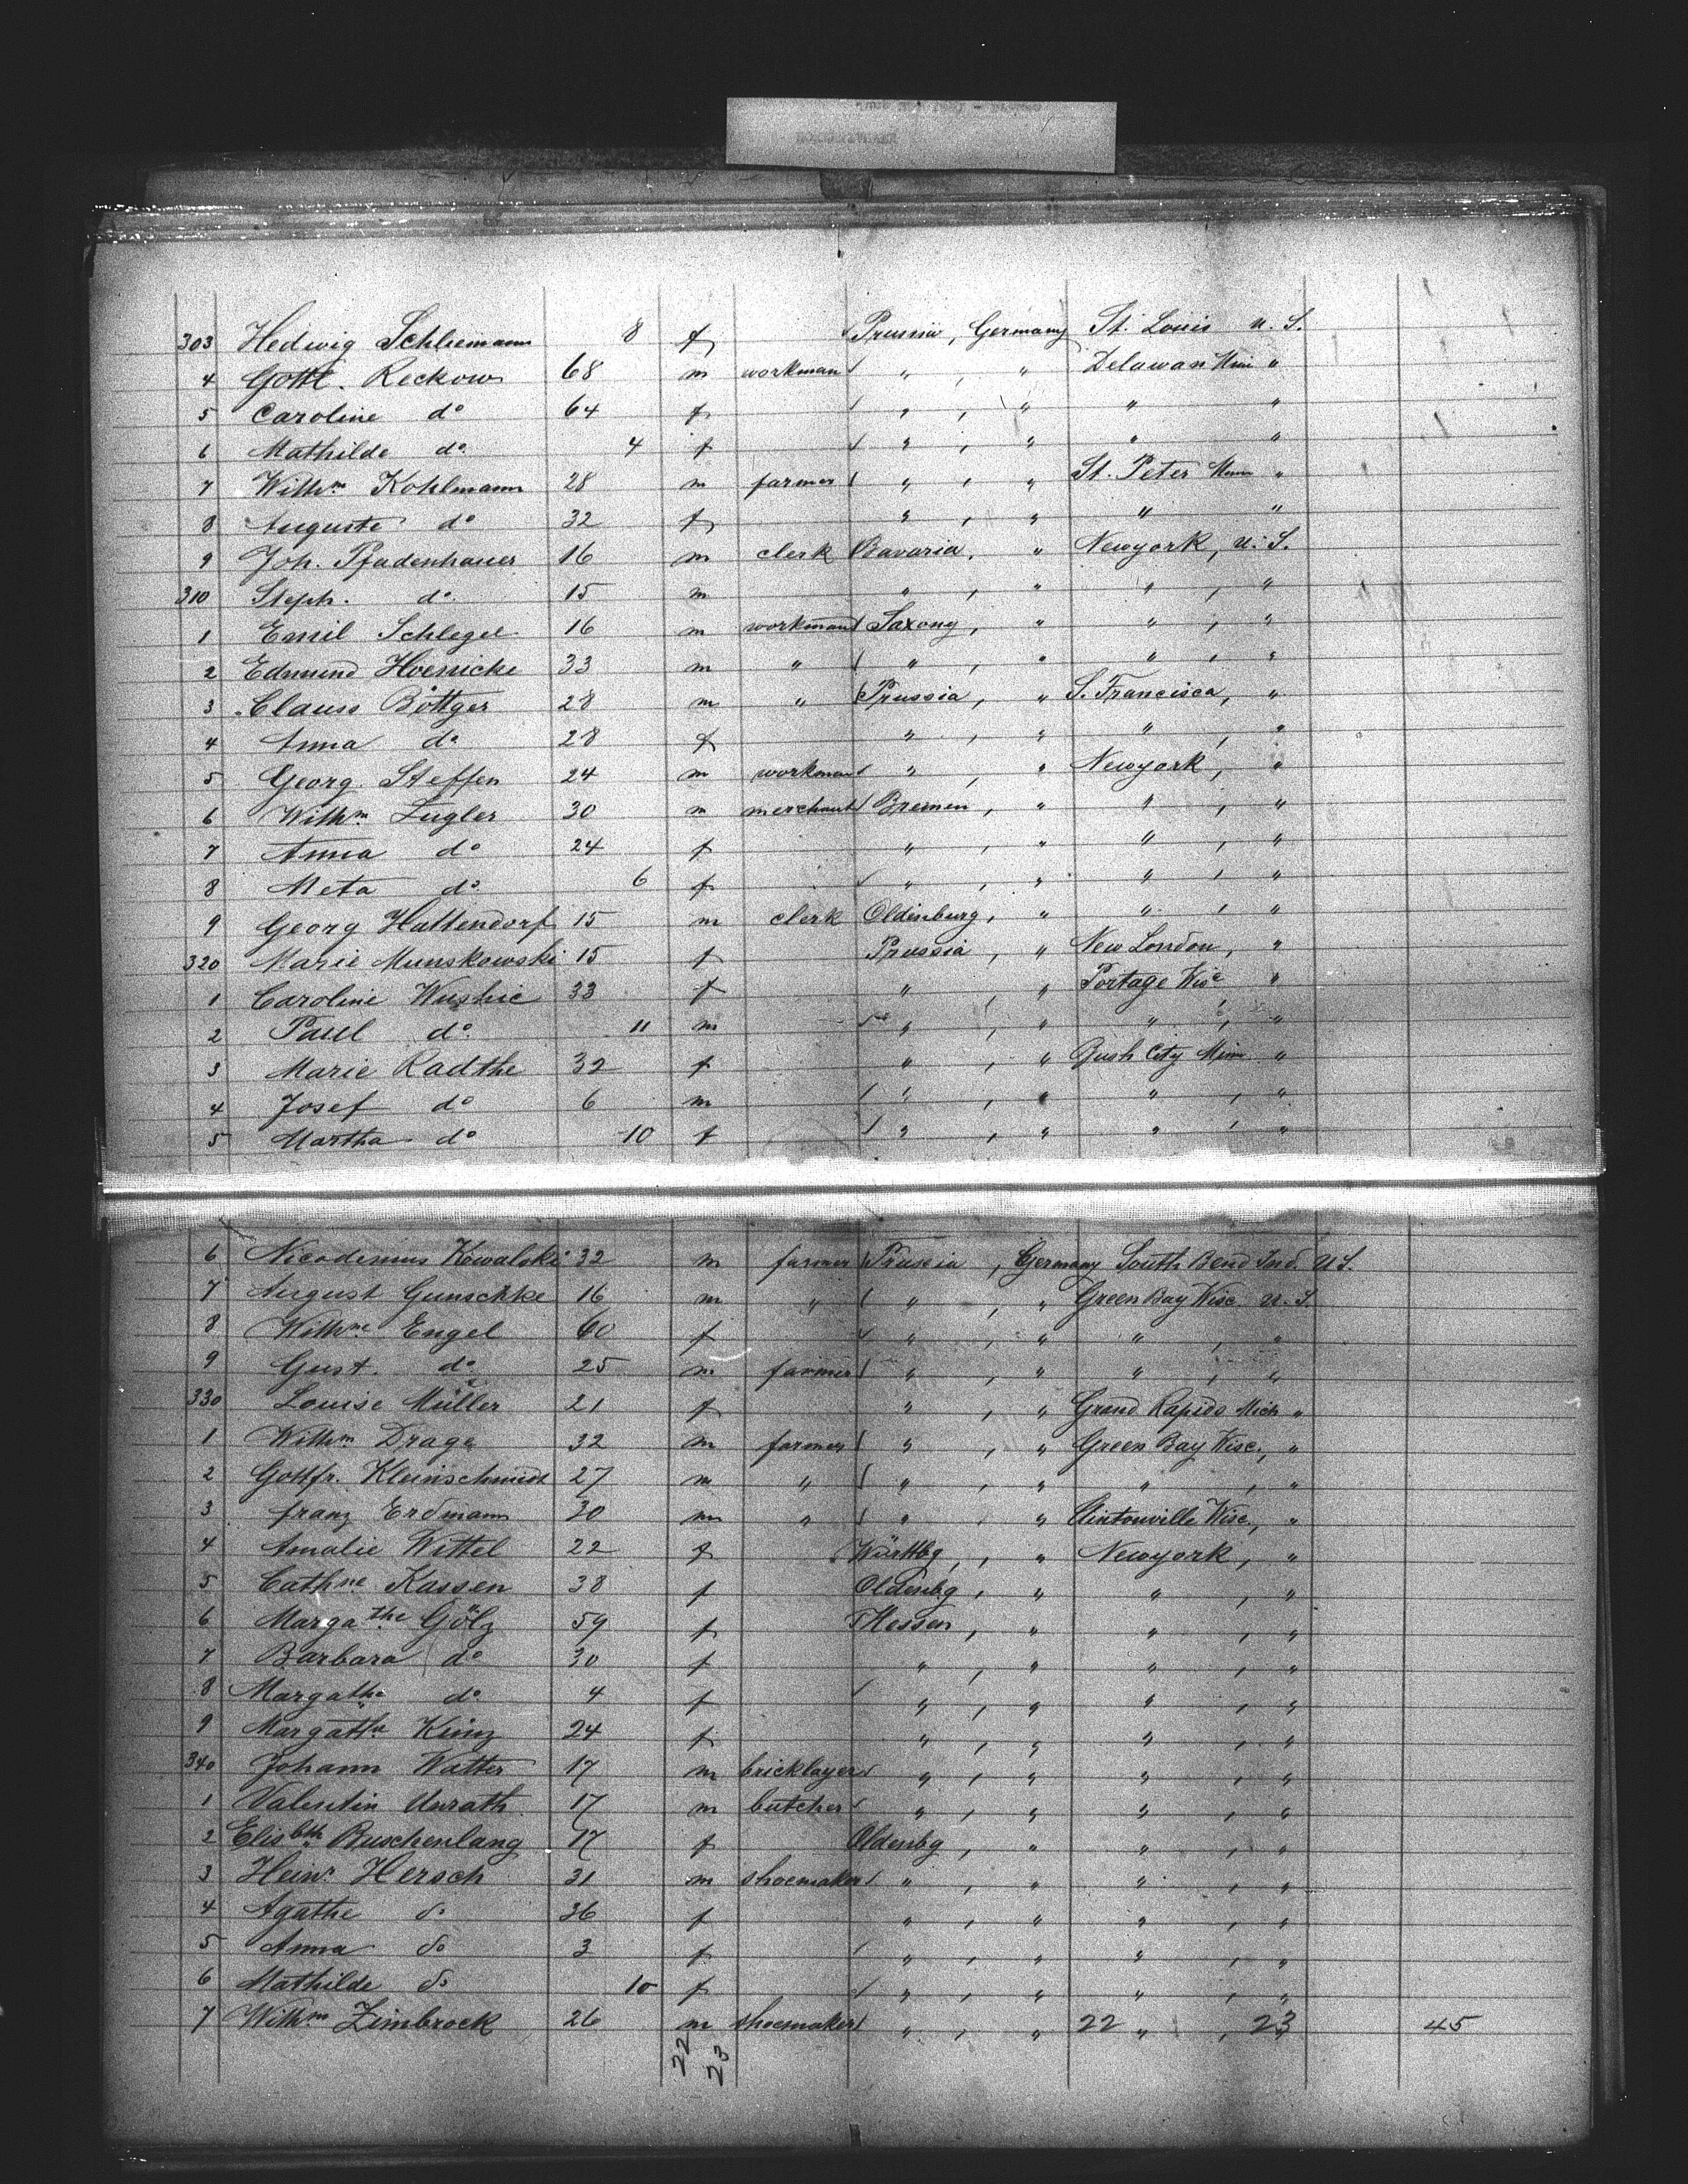 303 Hedwig Schliemann 8 f Prussia, Germany St. Louis U. S.
4 Gottl. Reckow 68 m workman " , " Delawan Min "
5 Caroline do 64 f " , " " "
6 Mathilde do 4 f " , " " "
7 Wilhm Kohlmann 28 m farmer " , " St. Peter Minn "
8 Auguste do 32 f " , " " "
9 Joh. Pfadenhauer 16 m clerk Bavaria, " Newyork, U. S.
310 Steph. do 15 m " , " " , "
1 Emil Schlegel 16 m workman Saxony, " " , "
2 Edmund Hoenicke 33 m " " , " " , "
3 Clauss Böttger 28 m " Prussia, " S. Francisca, "
4 Anna do 28 f " , " " , "
5 Georg Steffen 24 m workman " , " Newyork, "
6 Wilhm Lugler 30 m merchant Bremen, " " , "
7 Anna do 24 f " , " " , "
8 Meta do 6 f " , " " , "
9 Georg Hattendorf 15 m clerk Oldenburg, " " , "
320 Marie Munskowski 15 f Prussia, " New London, "
1 Caroline Wushie 33 f " , " Portage Wisc "
2 Paul do 11 m " , " " , "
3 Marie Radthe 32 f " , " Rush City Minn "
4 Josef do 6 m " , " " , "
5 Martha do 10 f " , " " , "
6 Nicodemus Kowalski 32 m farmer Prussia, Germany South Bend Ind. U S.
7 August Gunschke 16 m " " , " Green Bay Wisc. U. S.
8 Wilhme Engel 60 f " , " " , "
9 Gust. do 25 m farmer " , " " , "
330 Louise Müller 21 f " , " Grand Rapids Mich "
1 Wilhm Drage 32 m farmer " , " Green Bay Wisc., "
2 Gottfr. Kleinschmidt 27 m " " , " " , "
3 Franz Erdmann 30 m " " , " Clintonville Wisc., "
4 Amalie Wittel 22 f Württbg, " Newyork, "
5 Cathne Kassen 38 f Oldenbg, " " , "
6 Margathe Gölz 59 f Hessen, " " , "
7 Barbara do 30 f " , " " , "
8 Margathe do 4 f " , " " , "
9 Margathe Kinz 24 f " , " " , "
340 Johann Watter 17 m bricklayer " , " " , "
1 Valentin Unrath 17 m butcher " , " " , "
2 Elisbth Buschenlang 17 f Oldenbg, " " , "
3 Heinr. Hersch 31 m shoemaker " , " " , "
4 Agathe do 36 f " , " " , "
5 Anna do 3 f " , " " , "
6 Mathilde do 10 f " , " " , "
7 Wilhm Zimbrock 26 m shoemaker " , " 22 " , 23 45
22 23